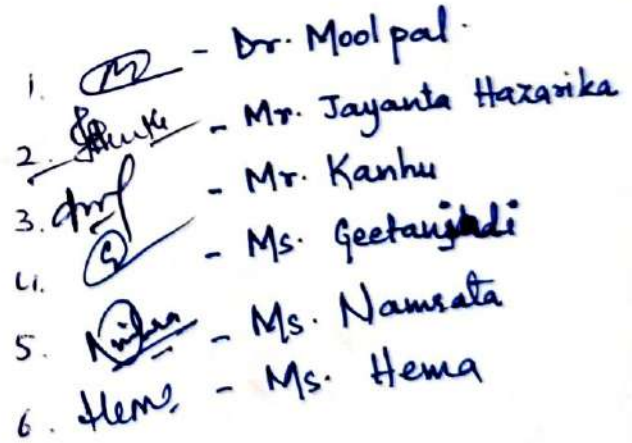 1. - Dr. Moolpal.
2. - Mr. Jayanta Hazarika
3. - Mr. Kanhu
4. - Ms.
5. - Ms. Namrata
6. Hema - Ms. Hema